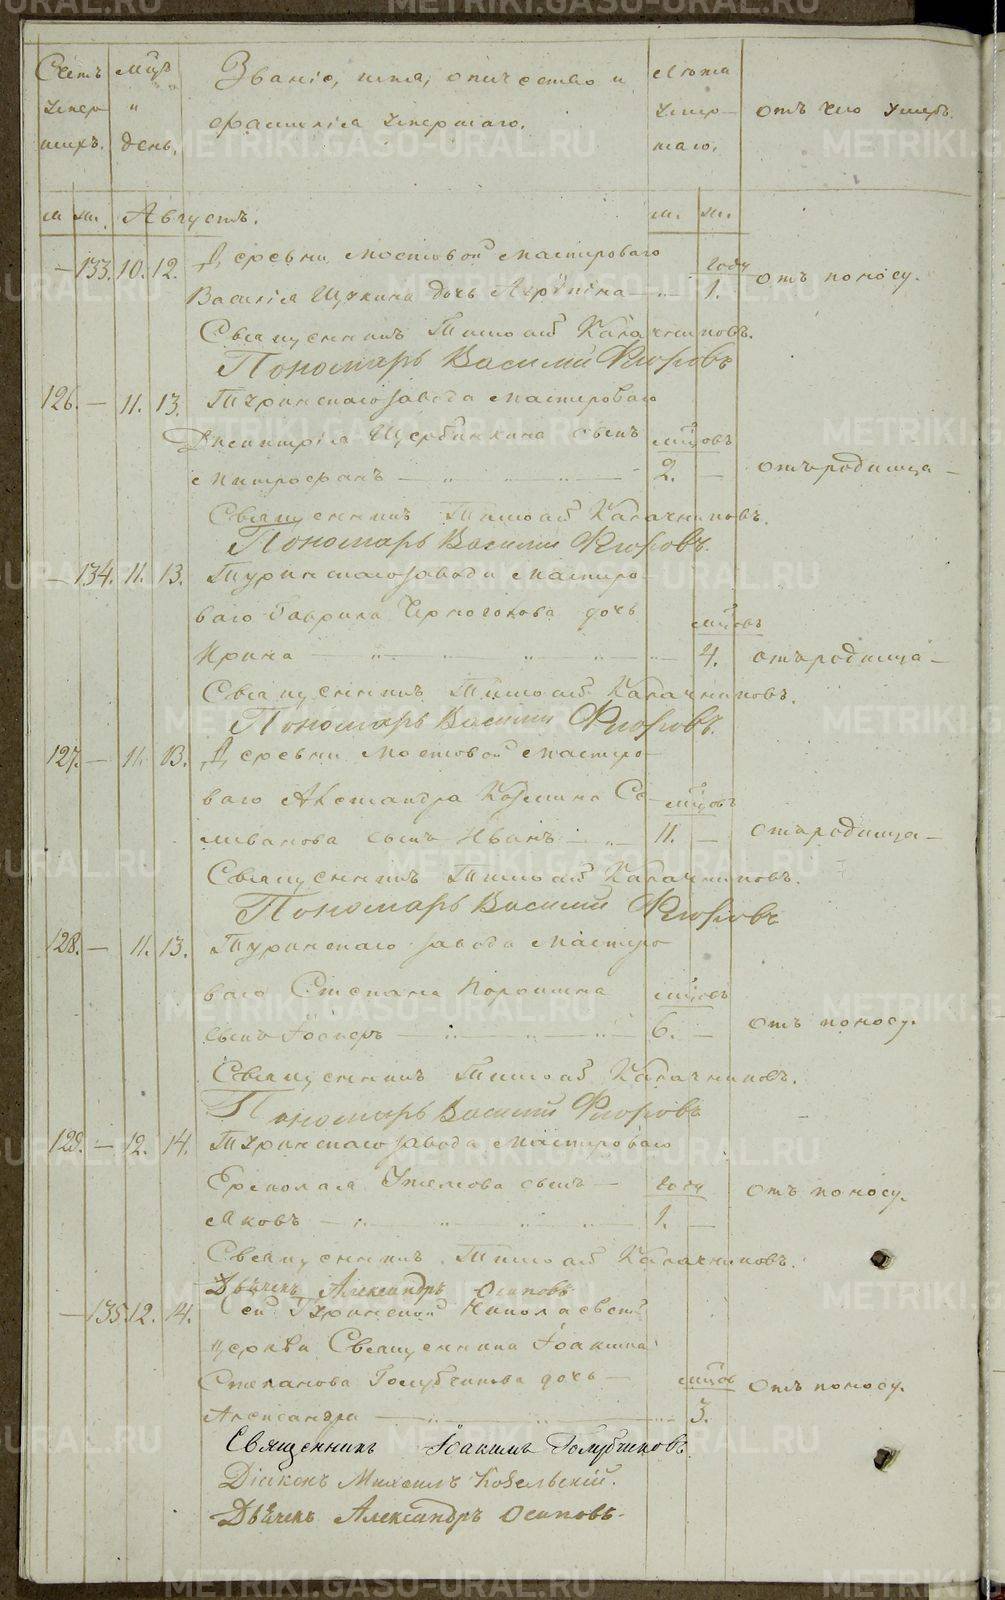 Счетъ умер- шихъ.
Мцъ и день.
Званiе, имя, отечество и
фамилiя умершаго.
Лѣта умер- шаго.
отъ чего умеръ.
м. ж. Августъ. м. ж.
— 133. 10. 12. Деревни Мостовой мастероваго
году
Василiя Щукина дочь Агрипина — „ — 1. отъ поносу.
Священникъ Тимоѳей Калачниковъ.
Пономарь Василий Флоровъ
126. — 11. 13. Туринскаго завода мастероваго
Димитрiя Щербинкина сынъ мцовъ
Митрофанъ — „ — „ — 2. — отъ родимца —
Священникъ Тимоѳей Калачниковъ.
Пономарь Василии Флоровъ.
— 134. 11. 13. Туринскаго завода мастеро-
ваго Гаврила Черноголова дочь мцовъ
Ирина — „ — „ — „ — 4. отъ родимца —
Священникъ Тимоѳей Калачниковъ.
Пономарь Василии Флоровъ.
127. — 11. 13. Деревни Мостовой мастеро-
ваго Александра Козмина Се- мцовъ
ливанова сынъ Иванъ — „ — 11. — отъ родимца —
Священникъ Тимоѳей Калачниковъ.
Пономарь Василий Флоровъ
128. — 11. 13. Туринскаго завода мастеро
ваго Степана Порошина мцовъ
сынъ — „ — „ — 6. — отъ поносу.
Священникъ Тимоѳей Калачниковъ.
Пономарь Василий Флоровъ
129. — 12. 14. Туринскаго завода мастероваго
Ермолая сынъ — году отъ поносу.
Яковъ — „ — „ — „ — „ — 1. —
Священникъ Тимоѳей Калачниковъ.
Дьячекъ Александръ Осиповъ
— 135. 12. 14. сей Туринской Николаевской
церкви Священника Iоакима
Степанова Голубчикова дочь — мцов отъ поносу.
Александра — „ — „ — „ — 3.
Священникъ Iоакимъ Голубчиковъ.
Дiаконъ Михаилъ Кобельскiй.
Дьячекъ Александръ Осиповъ.
METRIKI.GASO-URAL.RU